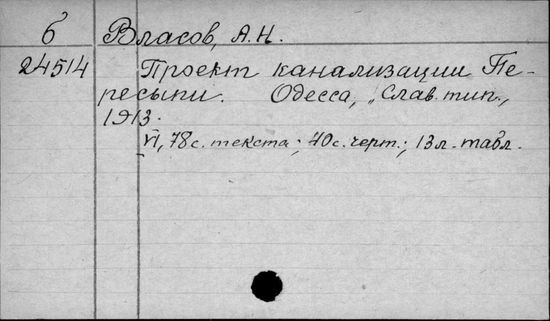 б Власов, А.Н.
24514 Проект канализации Пе-
ресыпи. Одесса, „Слав. тип.,
1913.
VI, 78 с. текста; 40 с. черт.; 13 л. табл.